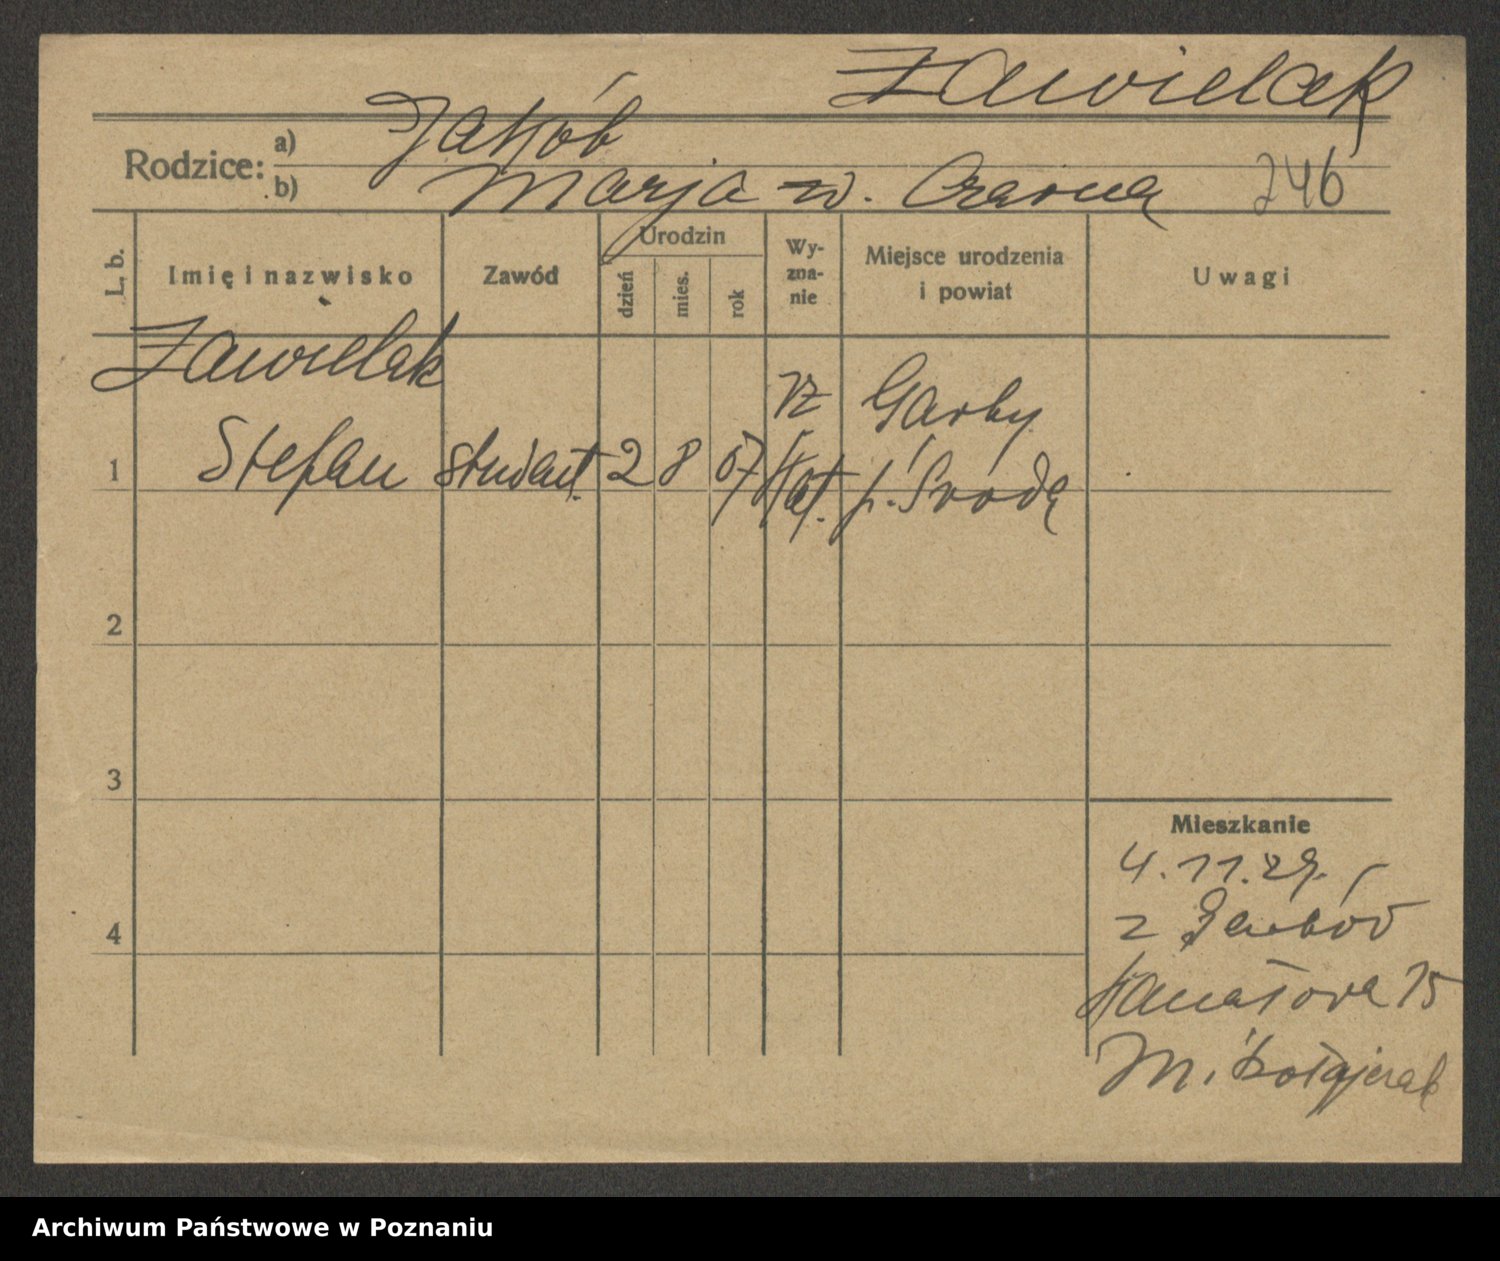 Zawielak
Rodzice: a) Jakób
b) Marja z d. Czarna 246
L. b. Imię i nazwisko Zawód Urodzin dzień mies. rok Wyznanie Miejsce urodzenia i powiat Uwagi
Zawielak
rz Garby
1 Stefan student. 2 8 07 kat. p. Środa
2
3
Mieszkanie
4. 11. 29.
4 z
15
Archiwum Państwowe w Poznaniu